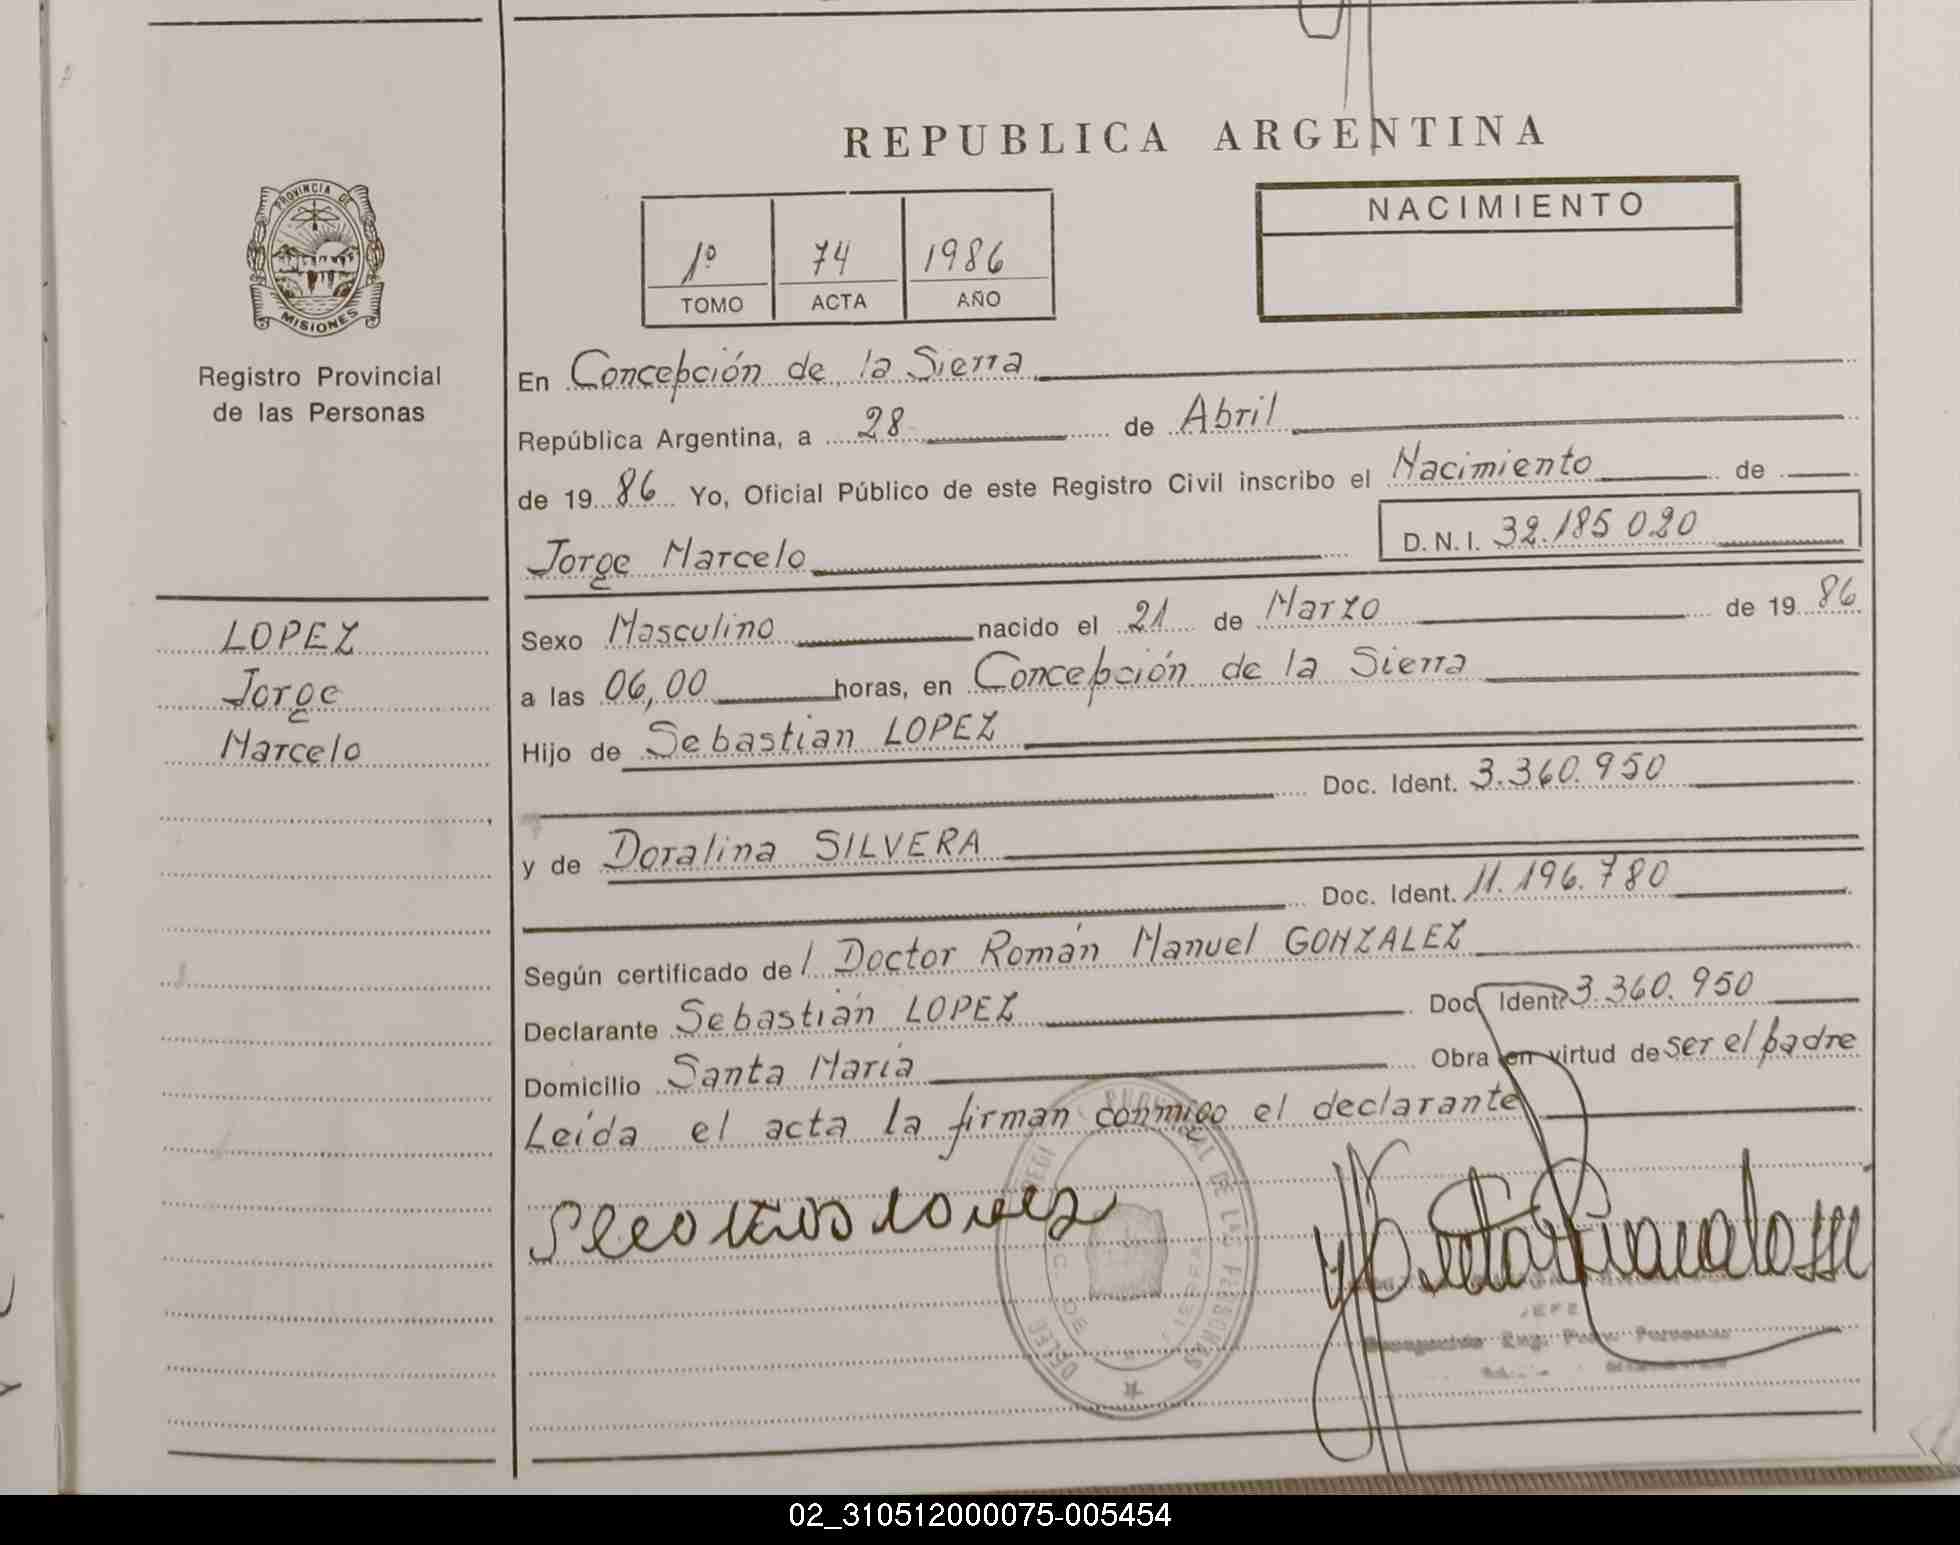 REPUBLICA ARGENTINA
PROVINCIA DE
MISIONES
Registro Provincial
de las Personas
LOPEZ
Jorge
Marcelo
1º 74 1986
TOMO ACTA AÑO
NACIMIENTO
En Concepción de la Sierra
República Argentina, a 28 de Abril
de 19 86 Yo, Oficial Público de este Registro Civil inscribo el Nacimiento de
Jorge Marcelo D.N.I. 32.185 020
Sexo Masculino nacido el 21 de Marzo de 19 86
a las 06,00 horas, en Concepción de la Sierra
Hijo de Sebastián LOPEZ
Doc. Ident. 3.360.950
y de Doralina SILVERA
Doc. Ident. 11.196.780
Según certificado de l Doctor Román Manuel GONZALEZ
Declarante Sebastián LOPEZ Doc. Ident. 3.360.950
Domicilio Santa María Obra en virtud de ser el padre
Leída el acta la firman conmigo el declarante
DE LAS PERSONAS
JEFE
02_310512000075-005454